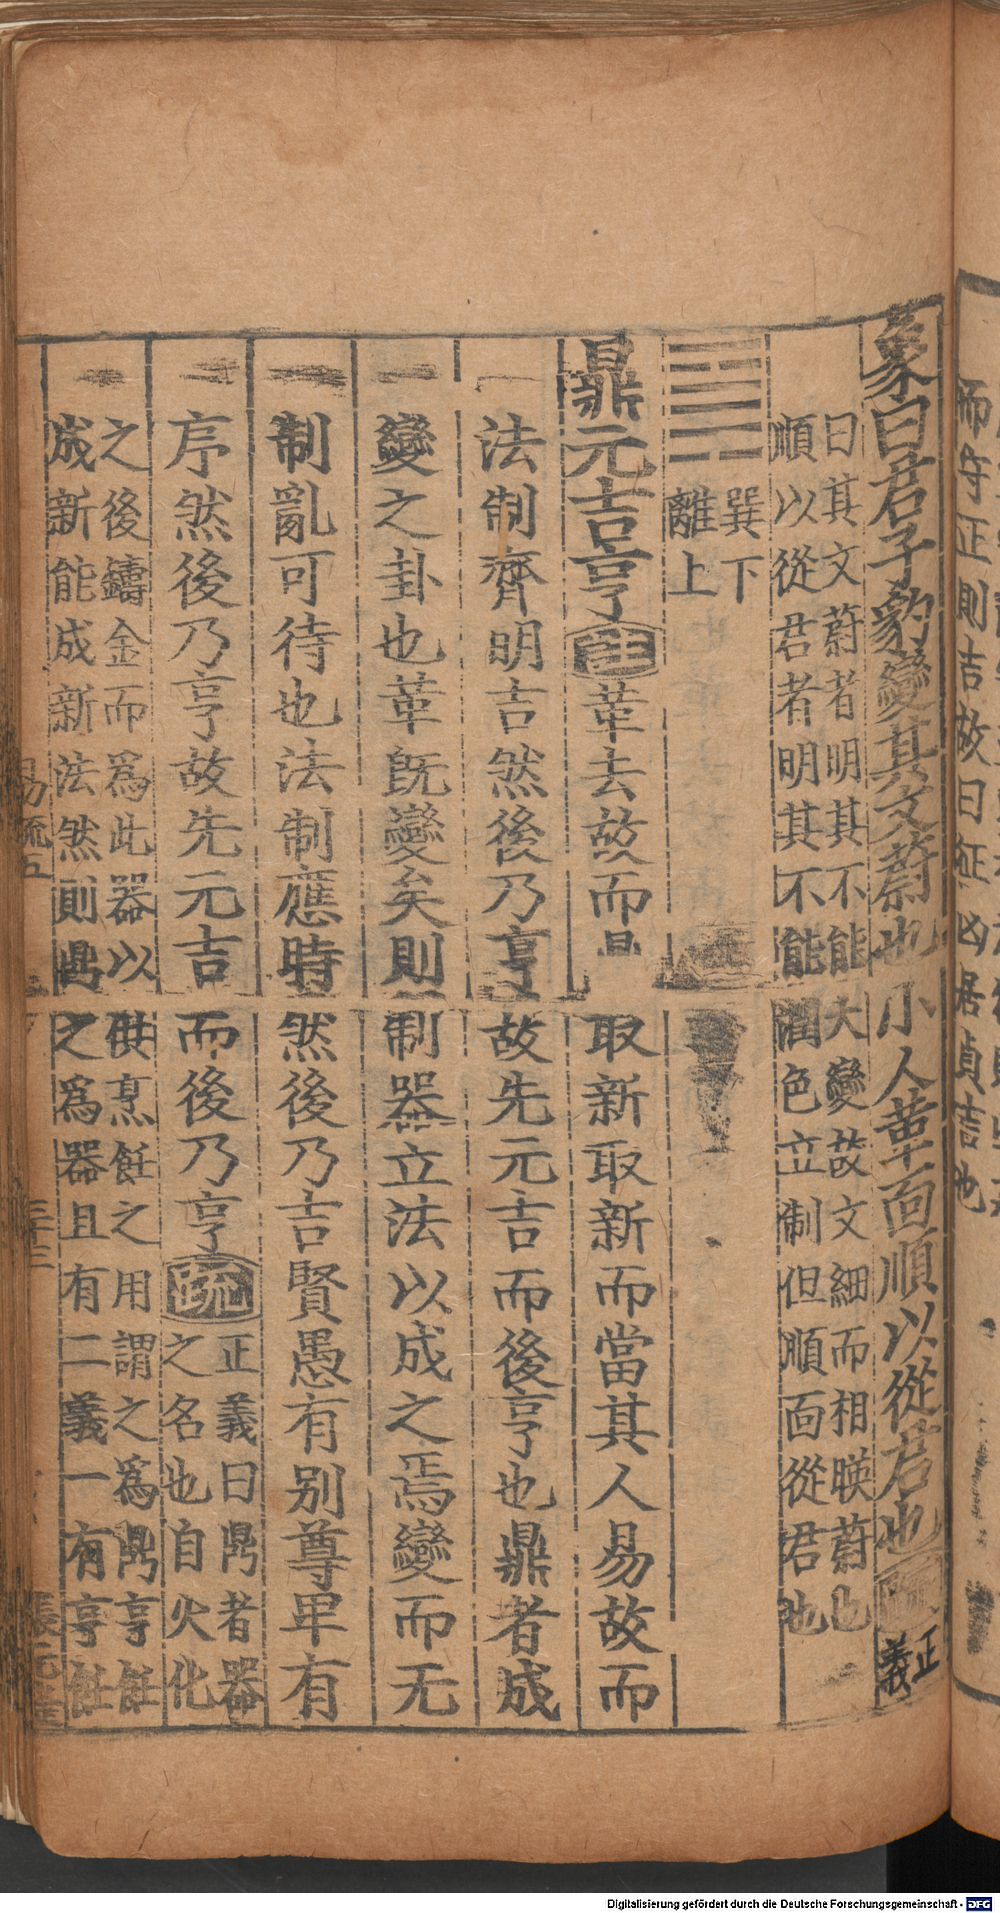 象曰君子豹變其文蔚也小人革面順以從君也疏正
義
曰其文蔚者明其不能大變故文細而相暎蔚也
順以從君者明其不能潤色立制但順面從君也
巽下
離上
鼎元吉亨註革去故而取新取新而當其人易故而
法制齊明吉然後乃亨故先元吉而後亨也鼎者成
變之卦也革既變矣則制器立法以成之焉變而无
制亂可待也法制應時然後乃吉賢愚有别尊卑有
序然後乃亨故先元吉而後乃亨疏
正義曰鼎者器
之名也自火化
之後鑄金而為此器以供烹飪之用謂之為鼎亨飪
成新能成新法然則鼎之為器且有二義一有亨飪
易疏五
三十三
師
正則吉故曰征凶居貞吉也
Digitalisierung gefördert durch die Deutsche Forschungsgemeinschaft - DFG